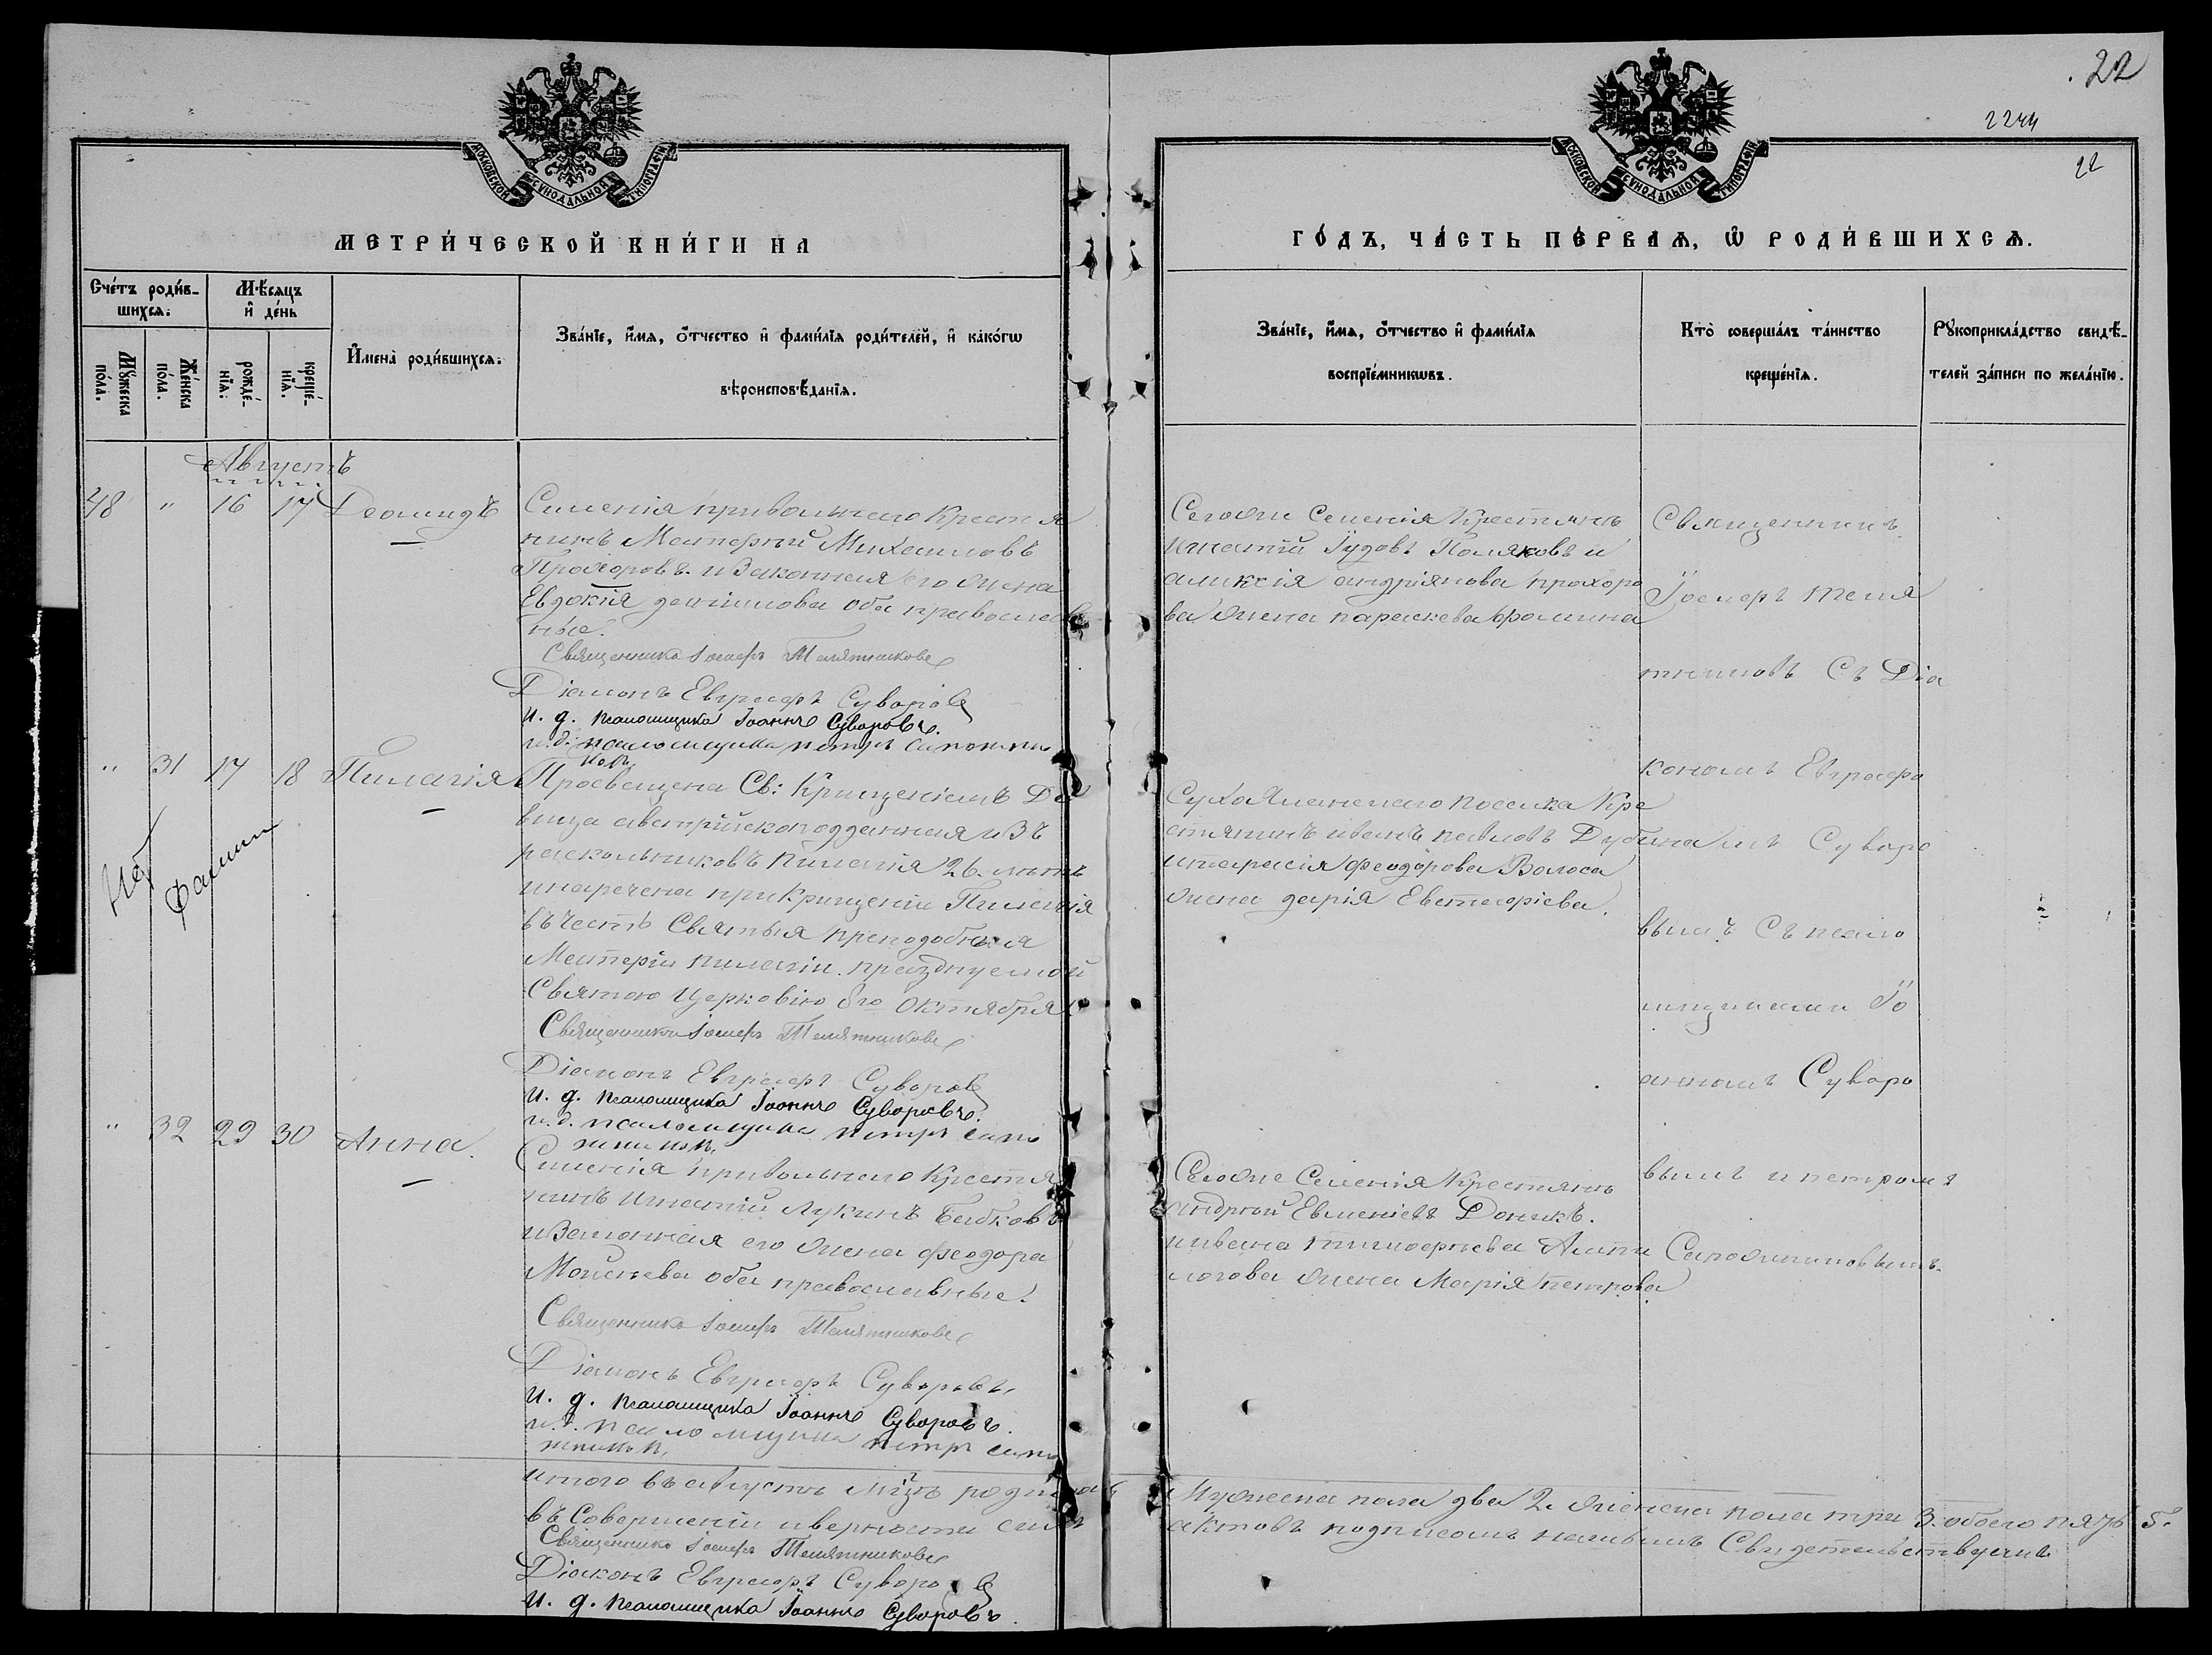 22
2244
22
МОСКОВСКОЙ СѴНОДАЛЬНОЙ ТИПОГРАФІИ
МОСКОВСКОЙ СѴНОДАЛЬНОЙ ТИПОГРАФІИ
МЕТРИ́ЧЕСКОЙ КНИ́ГИ НА
ГО́ДЪ, ЧА́СТЬ ПЕ́РВАѦ, Ѡ҆ РОДИ́ВШИХСѦ.
Сче́тъ роди́в-
шихсѧ:
Мꙋ́жеска по́ла.
Же́нска по́ла.
Мѣ́сѧцъ
и҆ де́нь
рожде́-
нїѧ:
креще́-
нїѧ.
И҆мена̀ роди́вшихсѧ:
Зва́нїе, и҆́мѧ, ѻ҆́тчество и҆ фами́лїѧ роди́телей, и҆ како́гѡ
вѣроисповѣ́данїѧ.
Зва́нїе, и҆́мѧ, ѻ҆́тчество и҆ фами́лїѧ
воспрїе́мникѡвъ.
Кто̀ соверша́лъ та́инство
креще́нїѧ.
Рꙋкоприкла́дство свидѣ́-
телей за́писи по жела́нїю.
Августъ
48 " 16 17 Деомидъ
Силенія привольнаго Крестья
нинъ Материй Михаиловъ
Прохоровъ. и Законная его жена
Евдокія данiилова оба православ
ные.
Священникъ Іосифъ Телятниковъ
Діаконъ Евграфъ Суворов
и. д. псаломщика Іоаннъ Суворовъ.
и. д. псаломщика петръ сапожни
ковъ
Сегоже Селенія Крестьянъ
игнатій Іудовъ Поляковъ и
аликсія андріянова прохоро
ва жена параскева фомина
Священникъ
Іосифъ теля
тниковъ Съ Діа
кономъ Евграфо
мъ Суворо
вымъ Съ псало
мщиками Іо
анномъ Суворо
вымъ и петромъ
Сапожниковымъ.
" 31 17 18 Пилагія
Просвещена Св: Крищеніемъ Де
вица австрійскоподданная изъ
раскольниковъ пилагія 26. летъ
инаречена при Крищеніи Пилагія
въ честь Святыя преподобныя
Матери пилагіи. празднуемой
Святою Церковію 8го Октября.
Священникъ Іосифъ Телятниковъ
Діаконъ Евграфъ Суворов
и. д. псаломщика Іоаннъ Суворовъ.
и. д. псаломщика петръ сапо
жниковъ
Нѣт фамил
Поселка Кре
стянинъ иванъ павловъ Дубина
итарасія феодорова Волоса
жена дарія Евстафіева.
" 32 29 30 Анна.
Силенія привольнаго Крестья
нинъ игнатій Лукинъ Бабковъ
иЗаконная его жена феодора
Моисеева оба православные.
Священникъ Іосифъ Телятниковъ
Діаконъ Евграфъ Суворовъ,
и. д. псаломщика Іоаннъ Суворовъ.
и. д. псаломщика петръ сапо
жниковъ
Сегоже Селенія Крестьянъ
андрей Евменіевъ Доникъ.
ивана тимофеева
жена Марія петрова
итого въ августе мцѣ родилось
Мужеска пола два 2. женска пола три 3. обоего пять 5.
въ Совершеніи иверности сихъ
актовъ подписомъ нашимъ Свидетельствуемъ
Священникъ Іосифъ Телятниковъ
Діаконъ Евграфъ Суворов
и. д. псаломщика Іоаннъ Суворовъ.